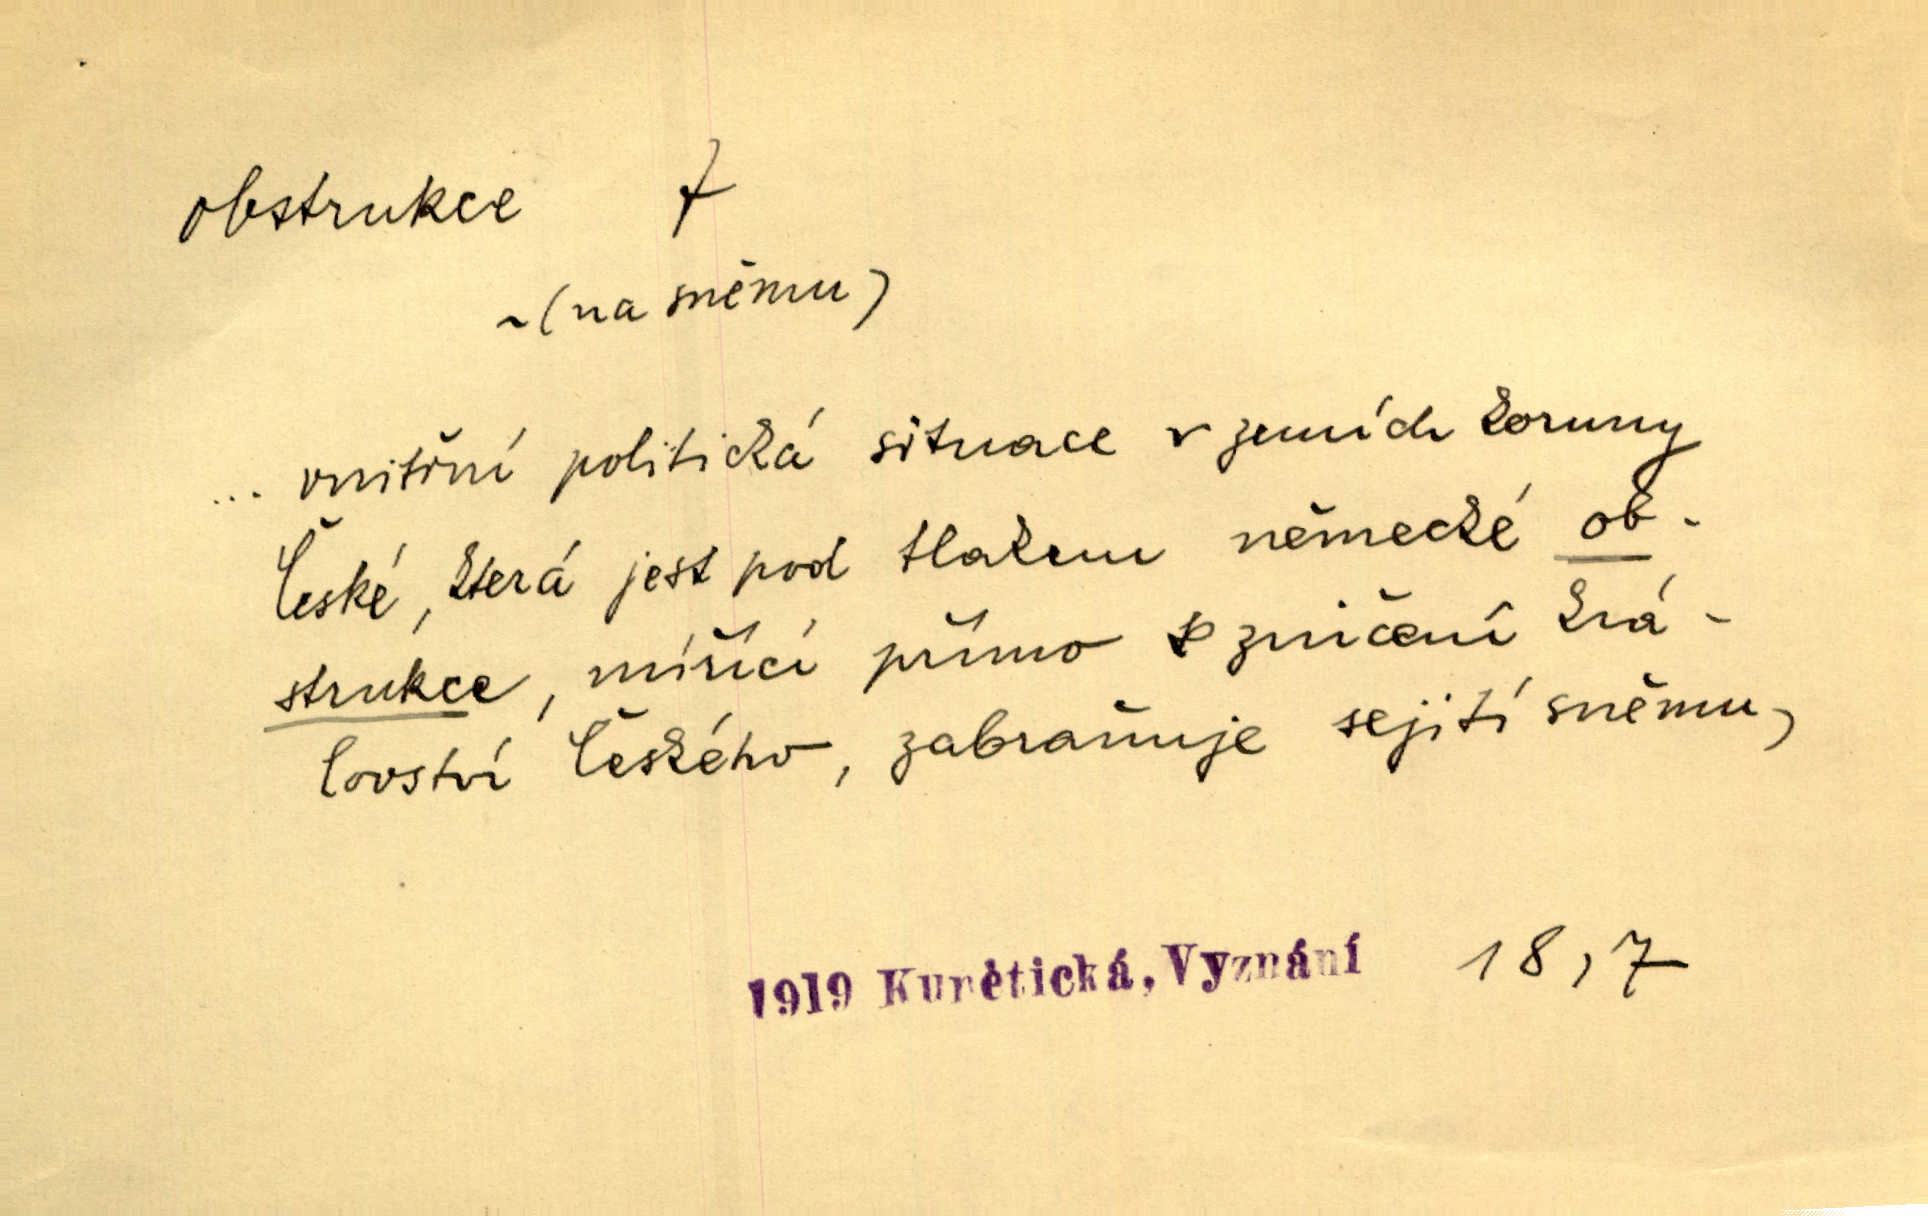 obstrukce f
~ (na sněmu)
... vnitřní politická situace v zemích koruny
České, která jest pod tlakem německé ob-
strukce, mířící přímo k zničení krá-
lovství Českého, zabraňuje sejití sněmu,
1919 Kunětická, Vyznání 18,7